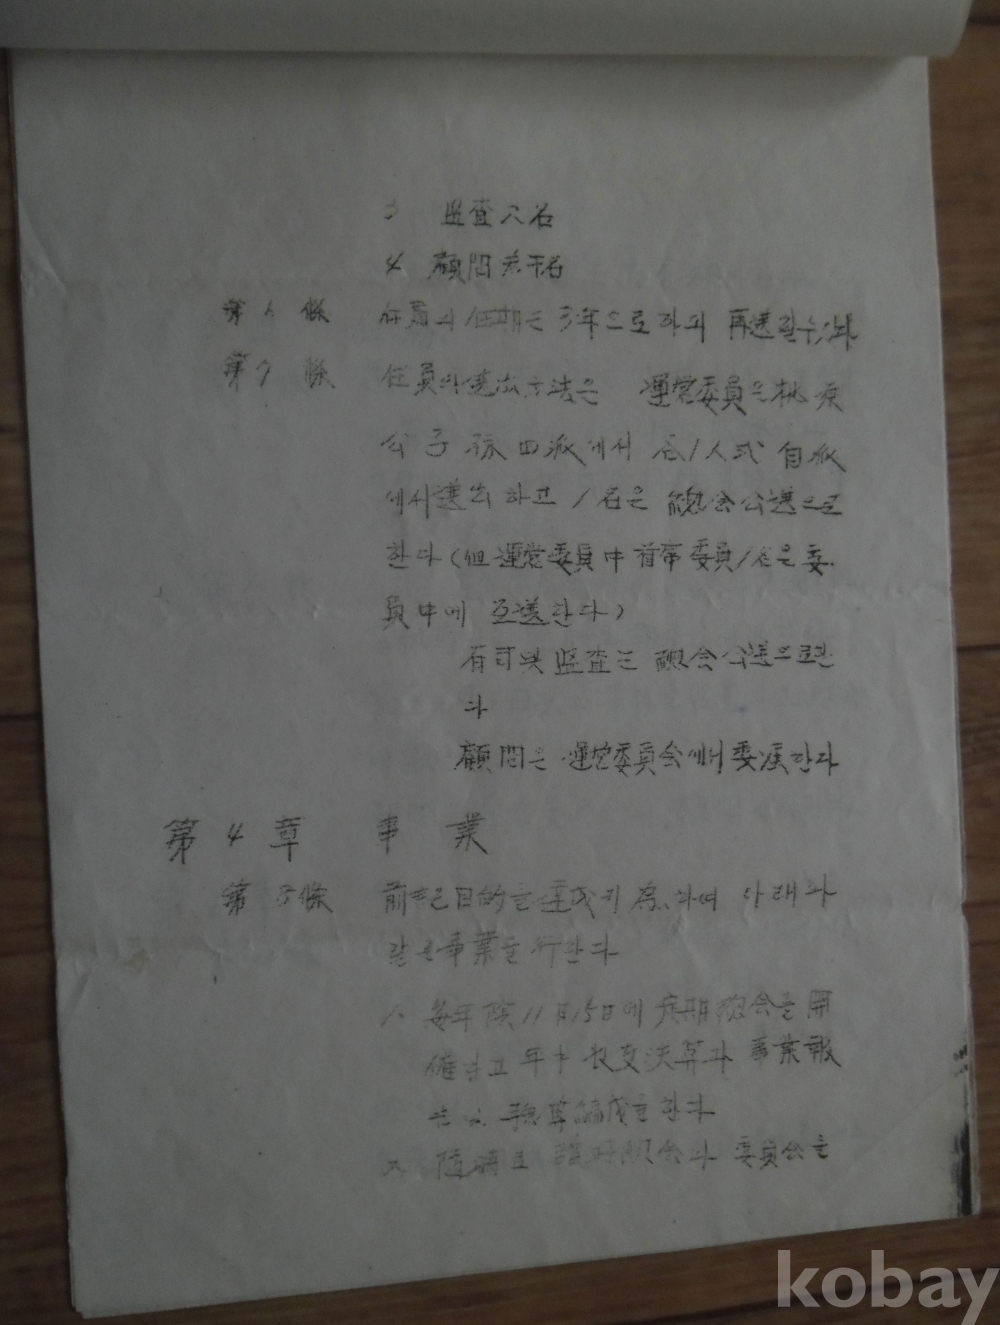 3 監査 2名
4 顧問 若干名
第6條 任員의 任期는 3年으로하며 再選할수있다
第7條 任員의 選出方法은 運営委員은
公子孫四派에서 各1人式 自派
에서 選出하고 1名은 總会公選으로
한다(但 運営委員中 首席委員1名은 委
員中에 互選한다)
有司 및 監査는 總会公選으로한
다
顧問은 運営委員会에서 委嘱한다
第4章 事業
第8條 前記目的을 達成키 為하여 아래와
같은 事業을 行한다
1 每年陰11月15日에 定期總会를 開
催하고 年中 収支決算과 事業報
告 및 予算編成을 한다
2 随時로 臨時總会와 委員会를
kobay